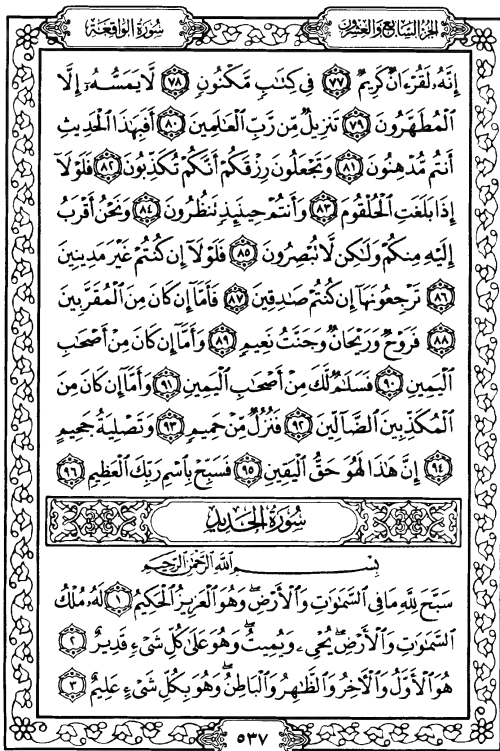 سُورَةُ الوَاقِعَة
الجُزءُ السَّابِعُ وَالعِشْرُون
إِنَّهُۥ لَقُرْءَانٌ كَرِيمٌ ٧٧ فِى كِتَٰبٍ مَّكْنُونٍ ٧٨ لَّا يَمَسُّهُۥٓ إِلَّا
ٱلْمُطَهَّرُونَ ٧٩ تَنزِيلٌ مِّن رَّبِّ ٱلْعَٰلَمِينَ ٨٠ أَفَبِهَٰذَا ٱلْحَدِيثِ
أَنتُم مُّدْهِنُونَ ٨١ وَتَجْعَلُونَ رِزْقَكُمْ أَنَّكُمْ تُكَذِّبُونَ ٨٢ فَلَوْلَآ
إِذَا بَلَغَتِ ٱلْحُلْقُومَ ٨٣ وَأَنتُمْ حِينَئِذٍ تَنظُرُونَ ٨٤ وَنَحْنُ أَقْرَبُ
إِلَيْهِ مِنكُمْ وَلَٰكِن لَّا تُبْصِرُونَ ٨٥ فَلَوْلَآ إِن كُنتُمْ غَيْرَ مَدِينِينَ
٨٦ تَرْجِعُونَهَآ إِن كُنتُمْ صَٰدِقِينَ ٨٧ فَأَمَّآ إِن كَانَ مِنَ ٱلْمُقَرَّبِينَ
٨٨ فَرَوْحٌ وَرَيْحَانٌ وَجَنَّتُ نَعِيمٍ ٨٩ وَأَمَّآ إِن كَانَ مِنْ أَصْحَٰبِ
ٱلْيَمِينِ ٩٠ فَسَلَٰمٌ لَّكَ مِنْ أَصْحَٰبِ ٱلْيَمِينِ ٩١ وَأَمَّآ إِن كَانَ مِنَ
ٱلْمُكَذِّبِينَ ٱلضَّآلِّينَ ٩٢ فَنُزُلٌ مِّنْ حَمِيمٍ ٩٣ وَتَصْلِيَةُ جَحِيمٍ
٩٤ إِنَّ هَٰذَا لَهُوَ حَقُّ ٱلْيَقِينِ ٩٥ فَسَبِّحْ بِٱسْمِ رَبِّكَ ٱلْعَظِيمِ ٩٦
سُورَةُ الحَدِيدِ
بِسْمِ ٱللَّهِ ٱلرَّحْمَٰنِ ٱلرَّحِيمِ
سَبَّحَ لِلَّهِ مَا فِى ٱلسَّمَٰوَٰتِ وَٱلْأَرْضِ ۖ وَهُوَ ٱلْعَزِيزُ ٱلْحَكِيمُ ١ لَهُۥ مُلْكُ
ٱلسَّمَٰوَٰتِ وَٱلْأَرْضِ ۖ يُحْىِۦ وَيُمِيتُ ۖ وَهُوَ عَلَىٰ كُلِّ شَىْءٍ قَدِيرٌ ٢
هُوَ ٱلْأَوَّلُ وَٱلْءَاخِرُ وَٱلظَّٰهِرُ وَٱلْبَاطِنُ ۖ وَهُوَ بِكُلِّ شَىْءٍ عَلِيمٌ ٣
٥٣٧